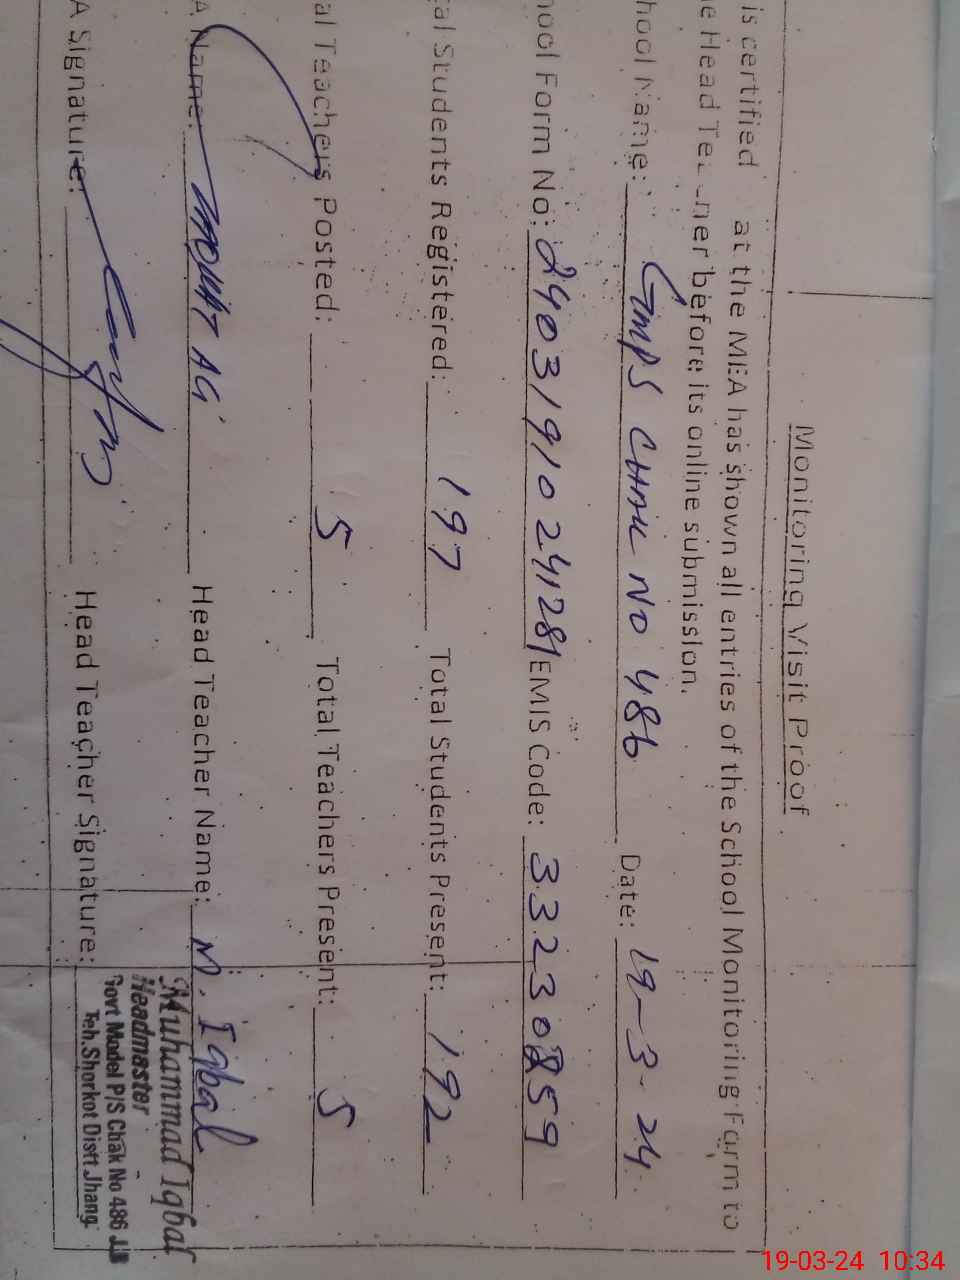 Monitoring Visit Proof
is certified at the MEA has shown all entries of the School Monitoring Form to
Head before its online submission.
hool Name: GMPS CHAK NO 486 Date: 19-3-24
hool Form No: EMIS Code: 33230259
al Students Registered: 197 Total Students Present: 192
al Teachers Posted: 5 Total Teachers Present: 5
A Name: Head Teacher Name: M. Iqbal
A Signature: Head Teacher Signature:
Muhammad Iqbal
Headmaster
Govt Model P/S Chak No 486 JB
Teh.Shorkot Distt.Jhang
19-03-24 10:34